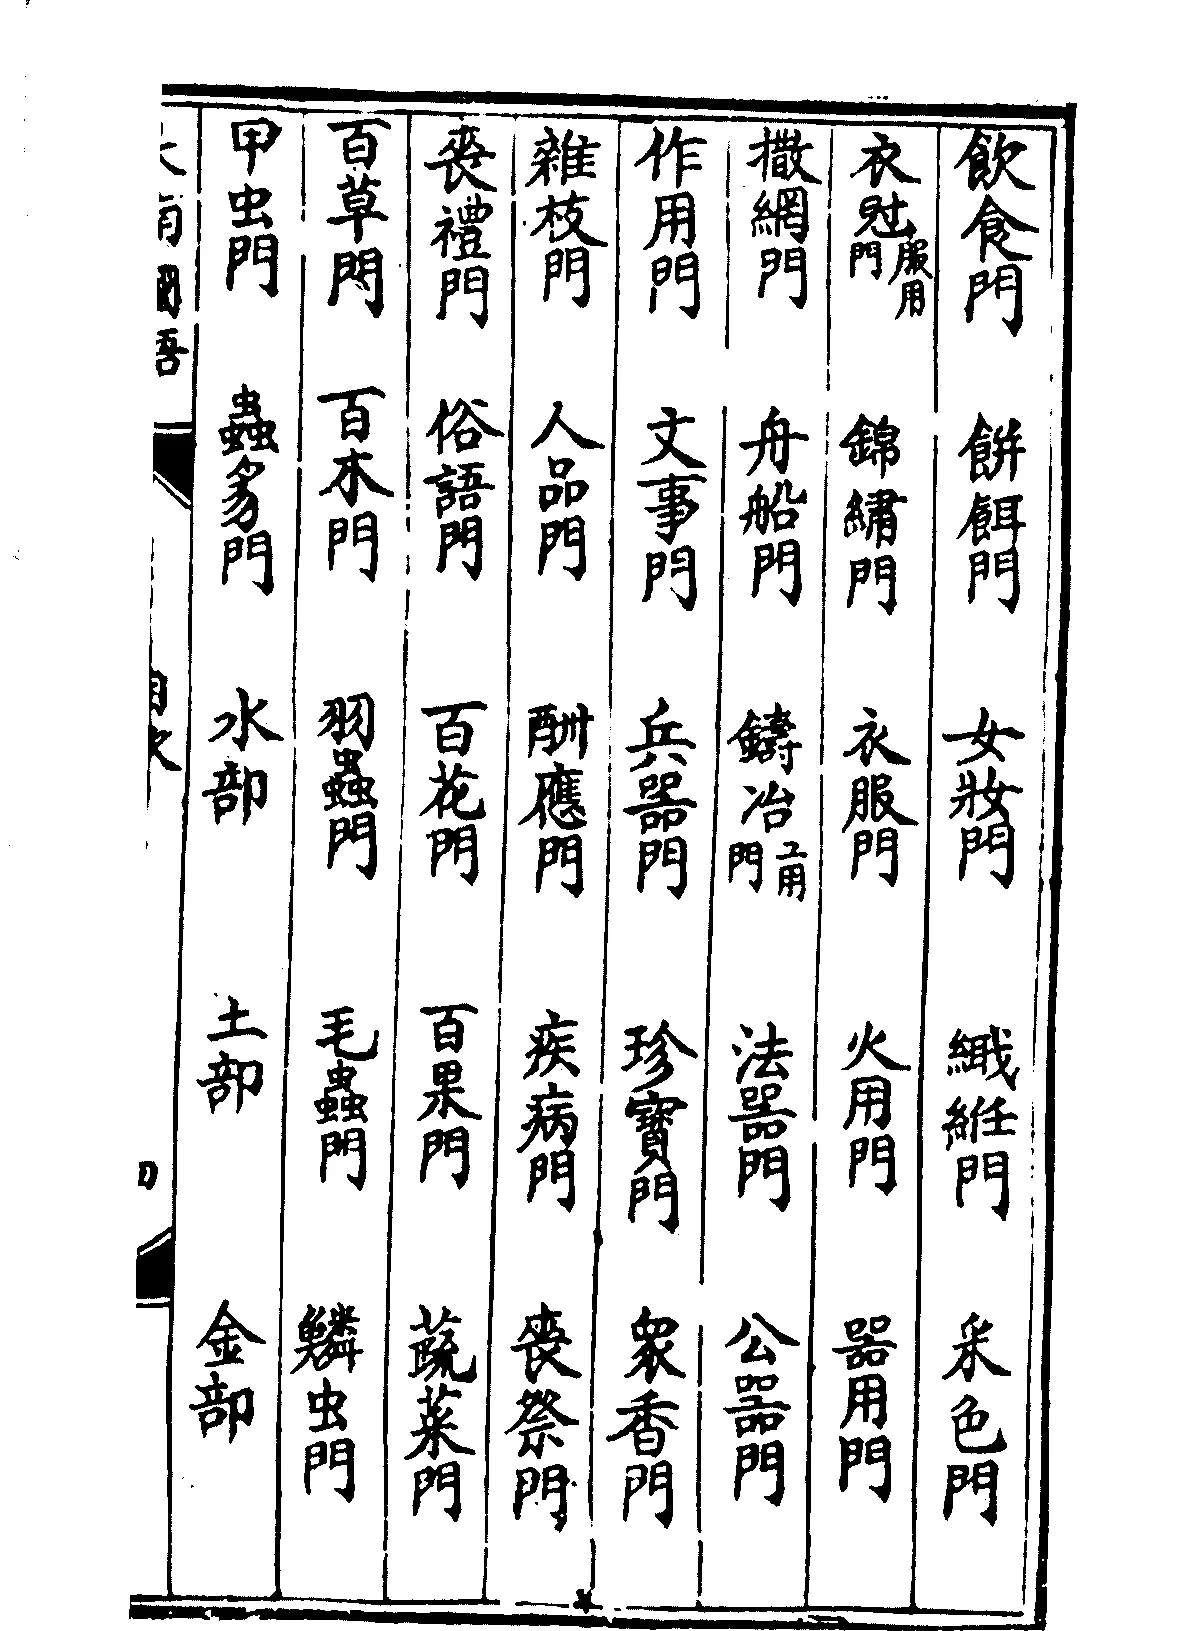 飲食門　餅餌門　女妝門　織絍門　采色門
衣冠服用門　錦繡門　衣服門　火用門　器用門
撒網門　舟船門　鑄冶工用門　法器門　公器門
作用門　文事門　兵器門　珍寶門　衆香門
雜枝門　人品門　酬應門　疾病門　喪祭門
喪禮門　俗語門　百花門　百果門　蔬菜門
百草門　百木門　羽蟲門　毛蟲門　鱗虫門
甲虫門　蟲豸門　水部　土部　金部
大南國語　目次